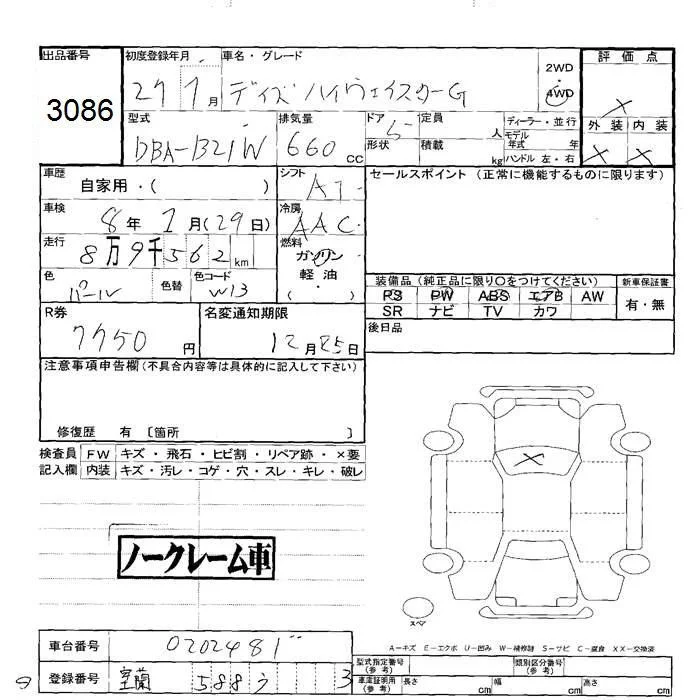 出品番号
3086
初度登録年月 車名・グレード
27 7月 デイズ ハイウェイスターG
2WD
・
4WD
評価点
X
外装 内装
X X
型式 排気量 ドア 定員 人 ディーラー・並行
DBA-B21W 660 cc 5
形状 積載 kg
モデル年式 年
ハンドル 左・右
車歴 シフト
自家用・( ) AT
車検 冷房
8年 7月(29日) AAC
走行 燃料
8万9千562km ガソリン
軽油
( ・ )
色 色替 色コード
パール W13
セールスポイント(正常に機能するものに限ります)
装備品(純正品に限り○をつけてください) 新車保証書
PS PW ABS エアB AW 有・無
SR ナビ TV カワ
後日品
R券 名変通知期限
7750円 12月25日
注意事項申告欄(不具合内容等は具体的に記入して下さい)
修復歴 有 〔箇所 〕
検査員 FW キズ・飛石・ヒビ割・リペア跡・×要
記入欄 内装 キズ・汚レ・コゲ・穴・スレ・キレ・破レ
X
ノークレーム車
スペア
A-キズ E-エクボ U-凹み W-補修跡 S-サビ C-腐食 XX-交換済
車台番号 0202481
登録番号 室蘭 588
型式指定番号(参考) 類別区分番号(参考)
車庫証明用(参考) 長さ cm 幅 cm 高さ cm